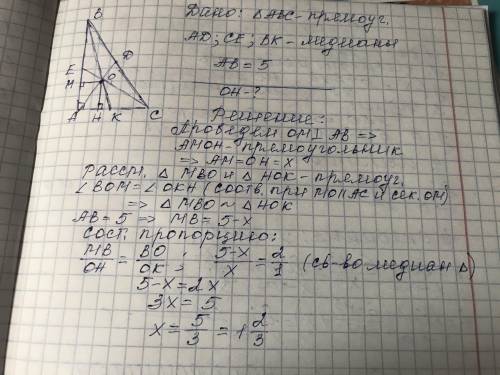 B
D
E
O
M
A H K C
Дано: △ABC - прямоуг.
AD; CE; BK - медианы
AB = 5
OH - ?
Решение:
Проведём OM ⊥ AB =>
AMOH - прямоугольник
=> AM = OH = x
Рассм. △ MBO и △ HOK - прямоуг.
∠BOM = ∠OKH (соотв. при MO || AC и сек. OM)
=> △ MBO ~ △ HOK
AB = 5 => MB = 5 - x
Сост. пропорцию:
MB/OH = BO/OK ; (5-x)/x = 2/1 (св-во медиан △)
5 - x = 2x
3x = 5
x = 5/3 = 1 2/3